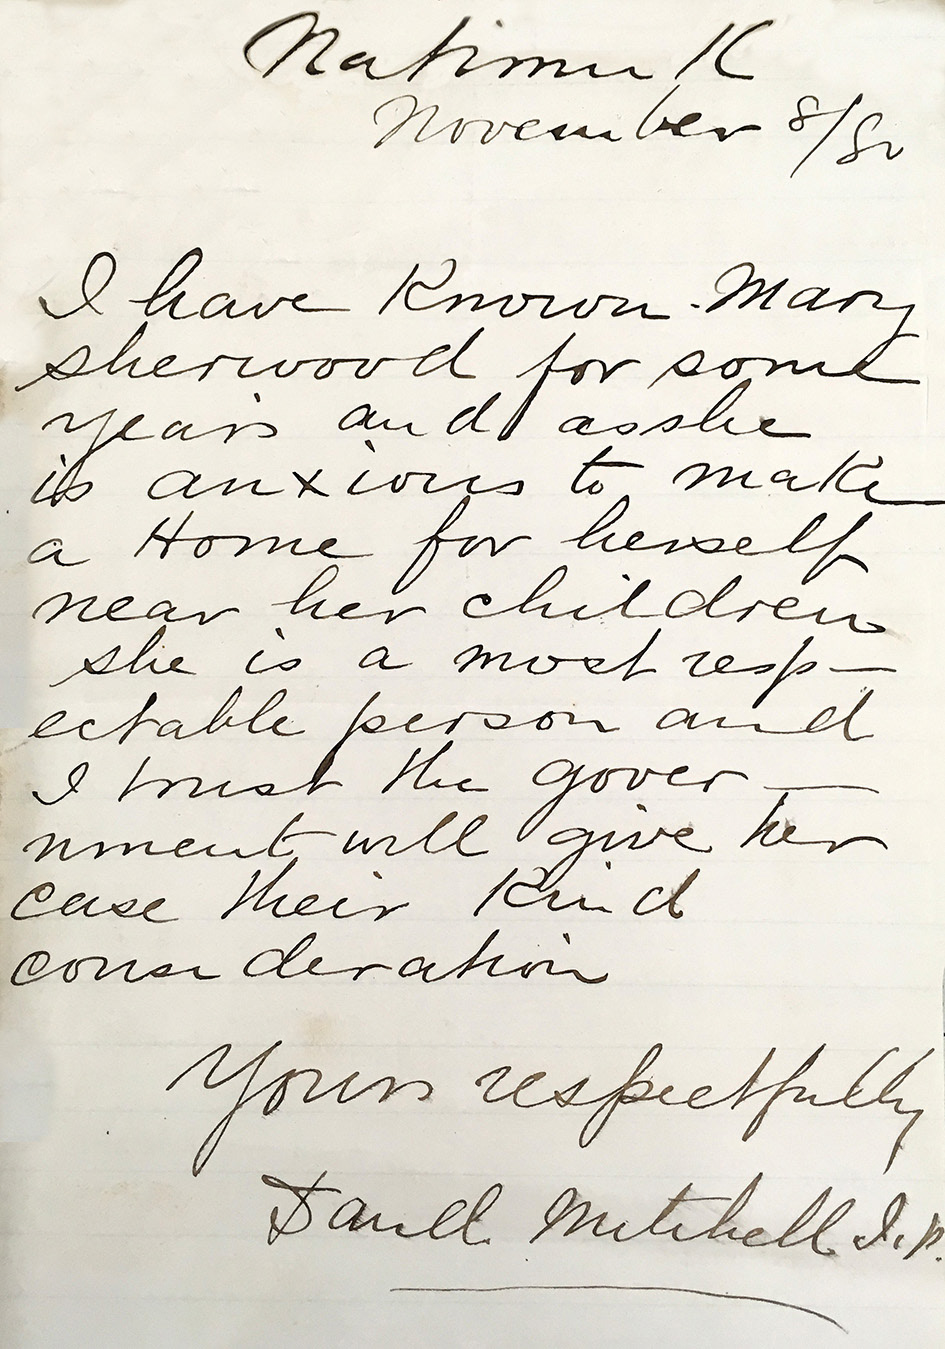 Natimuk
November 8/80
I have Known Mary
sherwood for some
years and asshe
is anxious to make
a Home for herself
near her children
she is a most resp-
ectable person and
I trust the gover-
nment will give her
case their Kind
consideration
Yours respectfully
Daniell Mitchell J.P.